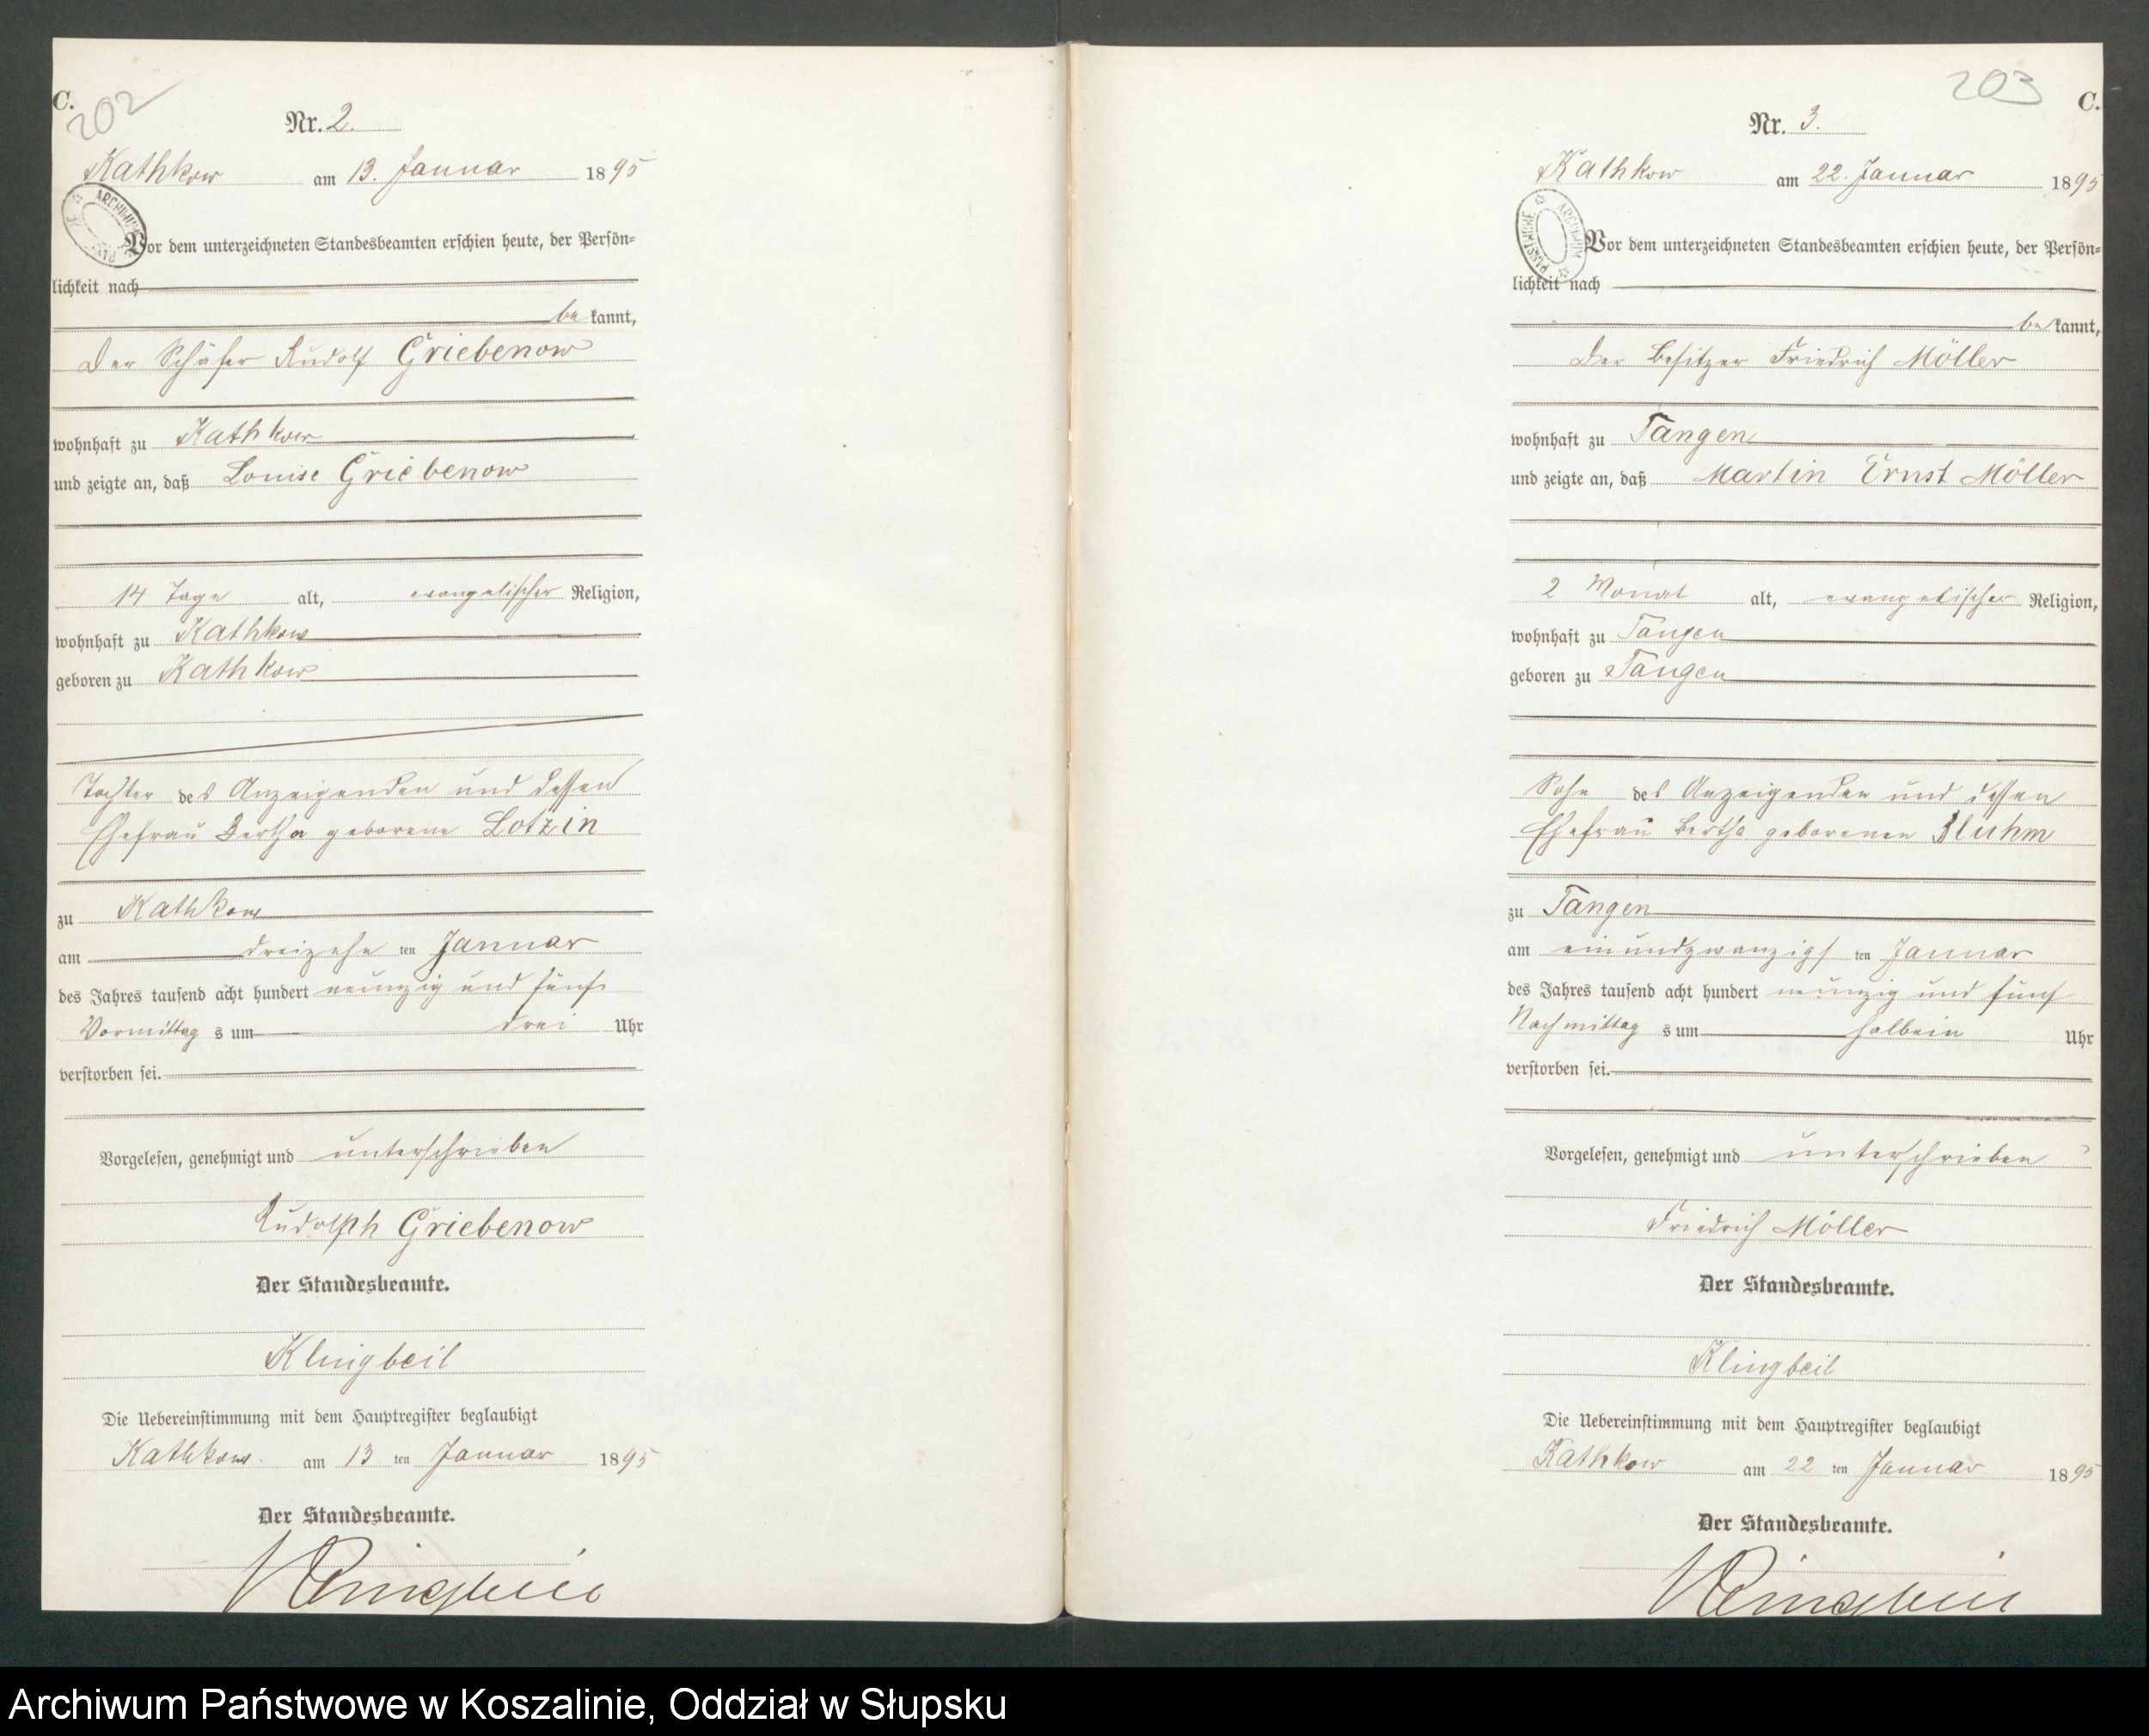 C.
202
Nr. 2.
Kathkow am 13. Januar 1895
Vor dem unterzeichneten Standesbeamten erschien heute, der Persön=
lichkeit nach
be kannt,
Der Schäfer Rudolf Griebenow
wohnhaft zu Kathkow
und zeigte an, daß Louise Griebenow
14 Tage alt, evangelischer Religion,
wohnhaft zu Kathkow
geboren zu Kathkow
Tochter des Anzeigenden und dessen
Ehefrau Bertha geborene Lotzin
zu Kathkow
am dreizehn ten Januar
des Jahres tausend acht hundert neunzig und fünf
Vormittag s um drei Uhr
verstorben sei.
Vorgelesen, genehmigt und unterschrieben
Rudolph Griebenow
Der Standesbeamte.
Klingbeil
Die Uebereinstimmung mit dem Hauptregister beglaubigt
Kathkow am 13 ten Januar 1895
Der Standesbeamte.
Klingbeil
203
C.
Nr. 3.
Kathkow am 22. Januar 1895
ARCHIWUM PAŃSTWOWE
Vor dem unterzeichneten Standesbeamten erschien heute, der Persön=
lichkeit nach
be kannt,
Der Besitzer Friedrich Möller
wohnhaft zu Tangen
und zeigte an, daß Martin Ernst Möller
2 Monat alt, evangelischer Religion,
wohnhaft zu Tangen
geboren zu Tangen
Sohn des Anzeigenden und dessen
Ehefrau Bertha geborenen Bluhm
zu Tangen
am einundzwanzigs ten Januar
des Jahres tausend acht hundert neunzig und fünf
Nachmittag s um halbein Uhr
verstorben sei.
Vorgelesen, genehmigt und unterschrieben
Friedrich Möller
Der Standesbeamte.
Klingbeil
Die Uebereinstimmung mit dem Hauptregister beglaubigt
Kathkow am 22 ten Januar 1895
Der Standesbeamte.
Klingbeil
Archiwum Państwowe w Koszalinie, Oddział w Słupsku